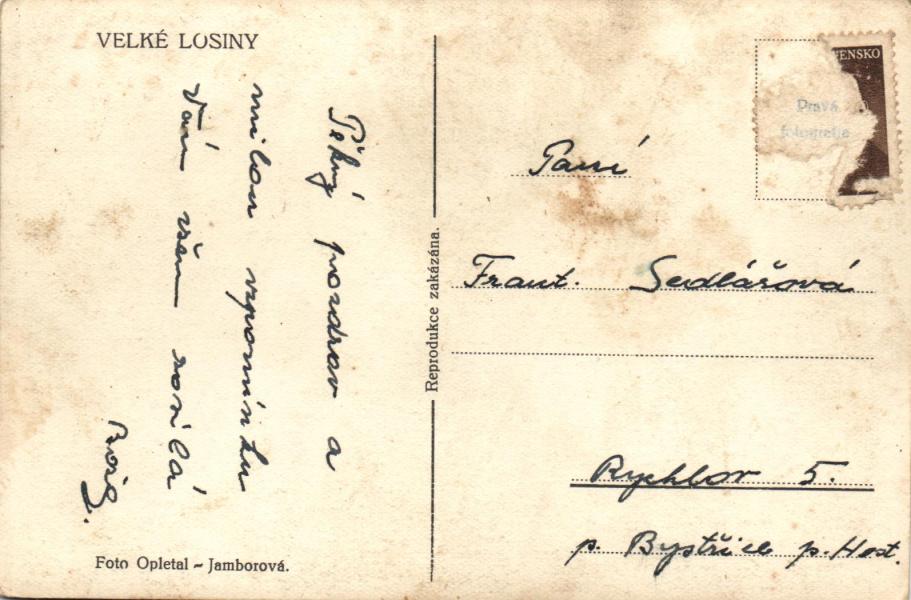 VELKÉ LOSINY
Pěkný pozdrav a
milou vzpomínku
Vám všem posílá
Reprodukce zakázána.
Foto Opletal – Jamborová.
VENSKO
Pravá
fotografie
Paní
Frant. Sedlářová
Rychlov 5.
p. Bystřice p. Host.